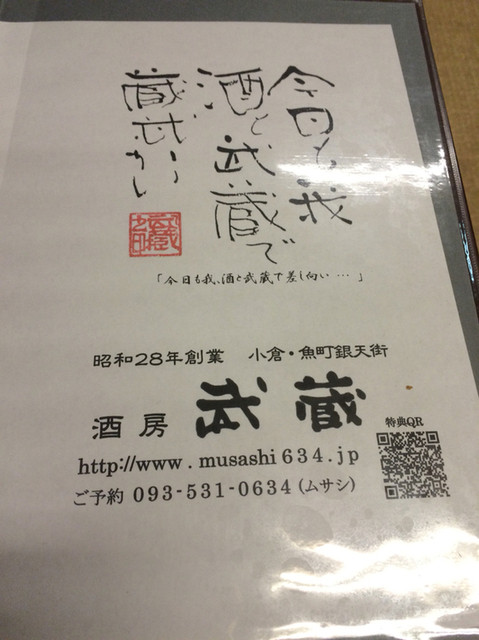 今日も我
酒と武蔵で
蔵武かい
「今日も我、酒と武蔵で差し向い…」
昭和28年創業 小倉・魚町銀天街
酒房 武蔵
特典QR
http://www.musashi634.jp
ご予約 093-531-0634(ムサシ)